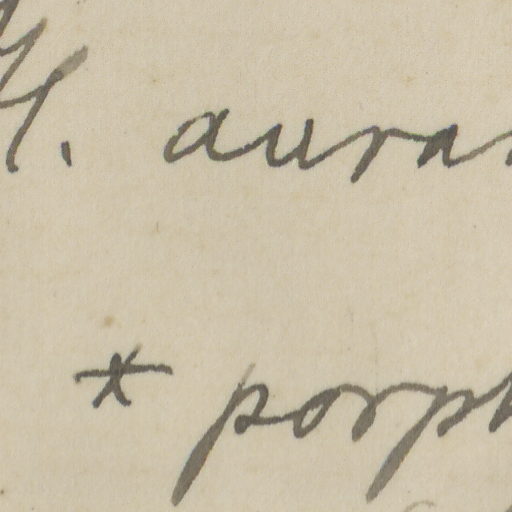 H. auran
* porph